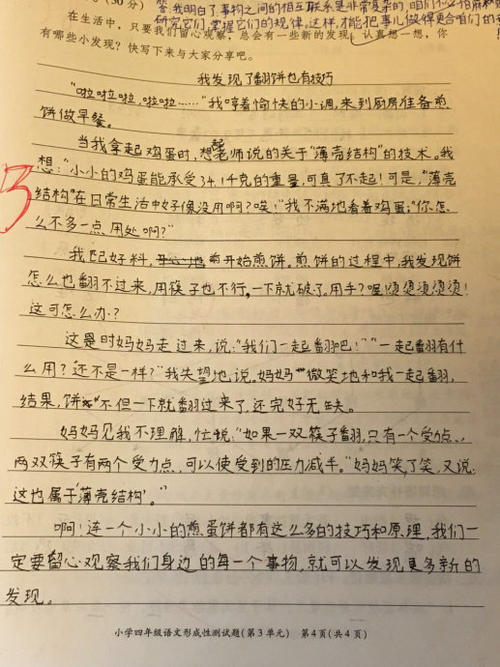 (30分)
我明白了事物之间的相互联系是非常复杂的,咱们
研究它们,掌握它们的规律,这样,才能把事儿做得更合咱们的
在生活中,只要我们留心观察,总会有一些新的发现。认真想一想,你
有哪些小发现?快写下来与大家分享吧。
我发现了翻饼也有技巧
“啦啦啦,啦啦……”我哼着愉快的小调,来到厨房准备煎
饼做早餐。
当我拿起鸡蛋时,想起老师说的关于“薄壳结构”的技术。我
想:“小小的鸡蛋能承受34.1千克的重量,可真了不起!可是,“薄壳
结构”在日常生活中好像没用啊?唉!”我不满地看着鸡蛋;“你怎
么不多一点用处啊?”
我匹好料,开始煎饼。煎饼的过程中,我发现饼
怎么也翻不过来,用筷子也不行,一下就破了,用手?喔!烫烫烫烫烫!
这可怎么办?
这是时妈妈走过来,说:“我们一起翻吧!”“一起翻有什
么用?还不是一样?”我失望地说,妈妈微笑地和我一起翻,
结果,饼不但一下就翻过来了,还完好无缺。
妈妈见我不理解,忙说:“如果一双筷子翻,只有一个受力点、
两双筷子有两个受力点,可以使受到的压力减半。”妈妈笑了笑,又说:
“这也属于‘薄壳结构’。”
啊!连一个小小的煎蛋饼都有这么多的技巧和原理,我们一
定要留心观察我们身边的每一个事物,就可以发现更多新的
发现。
小学四年级语文形成性测试题(第3单元) 第4页(共4页)